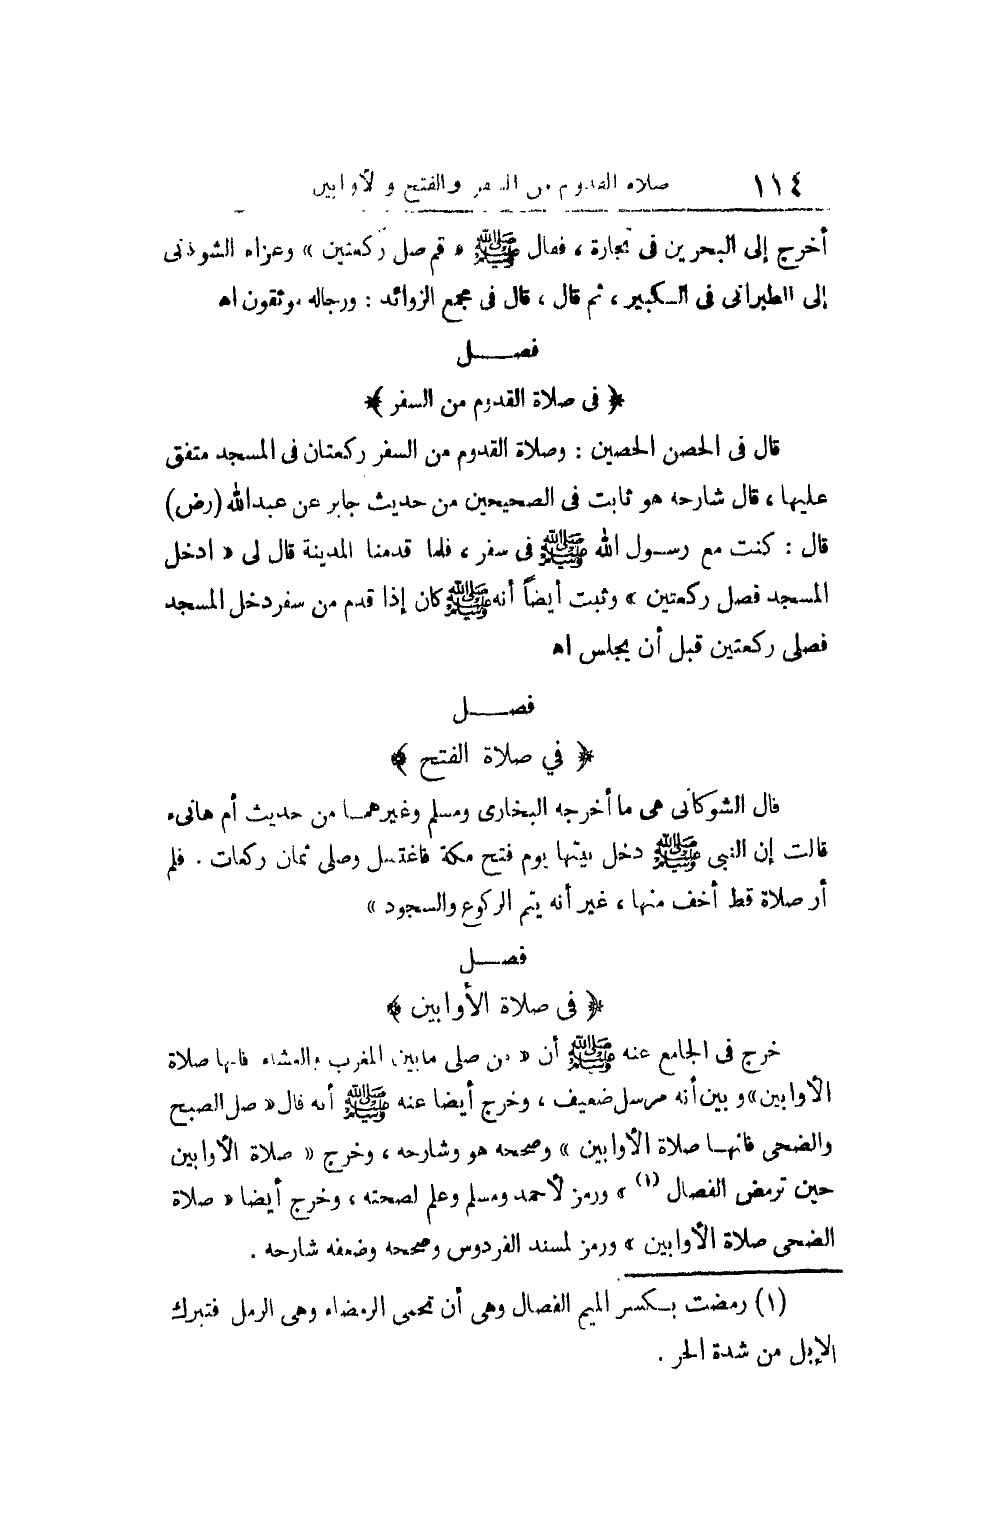 ١١٤ صلاة القدوم من السفر والفتح والأوابين
أخرج إلى البحرين فى تجارة ، فقال ﷺ « قم صل ركعتين » وعزاه الشوكانى
إلى الطبرانى فى الكبير ، ثم قال ، قال فى مجمع الزوائد : ورجاله موثقون اه
فصل
﴿ فى صلاة القدوم من السفر ﴾
قال فى الحصن الحصين : وصلاة القدوم من السفر ركعتان فى المسجد متفق
عليها ، قال شارحه هو ثابت فى الصحيحين من حديث جابر عن عبدالله (رض)
قال : كنت مع رسول الله ﷺ فى سفر ، فلما قدمنا المدينة قال لى « ادخل
المسجد فصل ركعتين » وثبت أيضاً أنه ﷺ كان إذا قدم من سفر دخل المسجد
فصلى ركعتين قبل أن يجلس اه
فصل
﴿ في صلاة الفتح ﴾
قال الشوكانى هى ما أخرجه البخارى ومسلم وغيرهما من حديث أم هانىء
قالت إن النبى ﷺ دخل بيتها يوم فتح مكة فاغتسل وصلى ثمان ركعات . فلم
أر صلاة قط أخف منها ، غير أنه يتم الركوع والسجود »
فصل
﴿ فى صلاة الأوابين ﴾
خرج فى الجامع عنه ﷺ أن « من صلى مابين المغرب والعشاء فانها صلاة
الأوابين» وبين أنه مرسل ضعيف ، وخرج أيضا عنه ﷺ أنه قال « صل الصبح
والضحى فانها صلاة الأوابين » وصححه هو وشارحه ، وخرج « صلاة الأوابين
حين ترمض الفصال (١) » ورمز لأحمد ومسلم وعلم لصحته ، وخرج أيضا « صلاة
الضحى صلاة الأوابين » ورمز لمسند الفردوس وصححه وضعفه شارحه .
(١) رمضت بكسر الميم الفصال وهى أن تحمى الرمضاء وهى الرمل فتبرك
الإبل من شدة الحر .